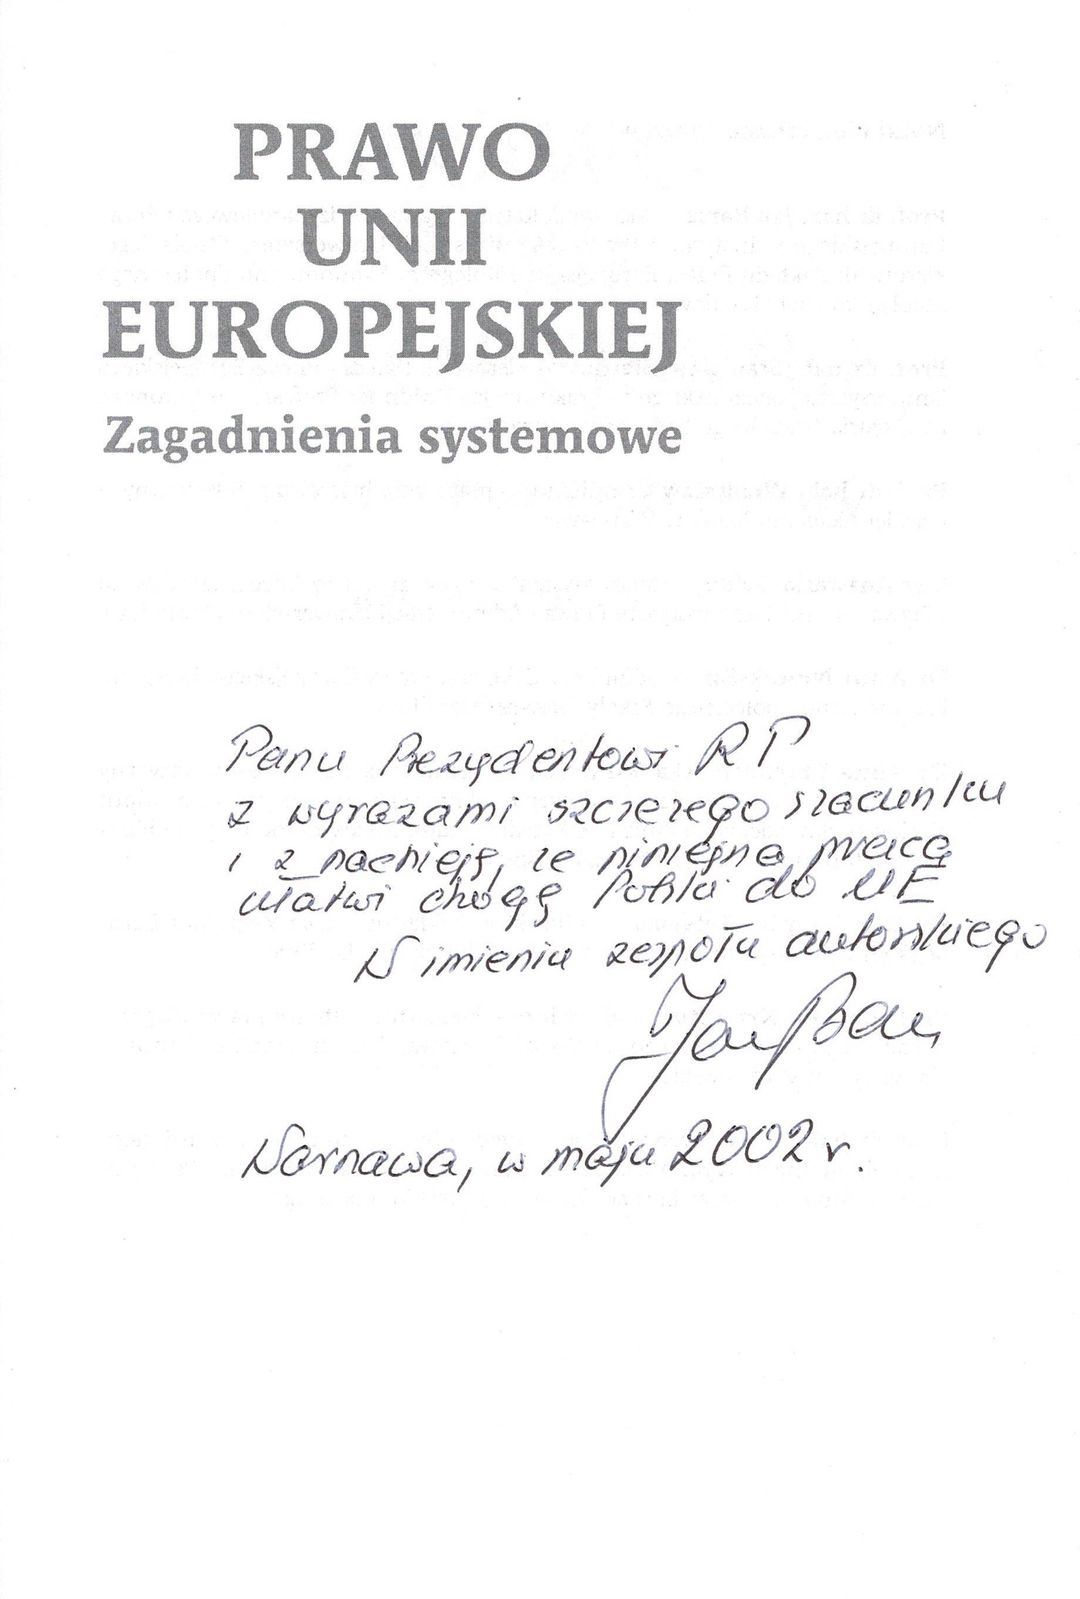 PRAWO
UNII
EUROPEJSKIEJ
Zagadnienia systemowe
Panu Prezydentowi RP
z wyrazami szczerego szacunku
i z nadzieją, że niniejsza praca
ułatwi drogę Polski do UE
W imieniu zespołu autorskiego
Jan Bar
Warszawa, w maju 2002 r.